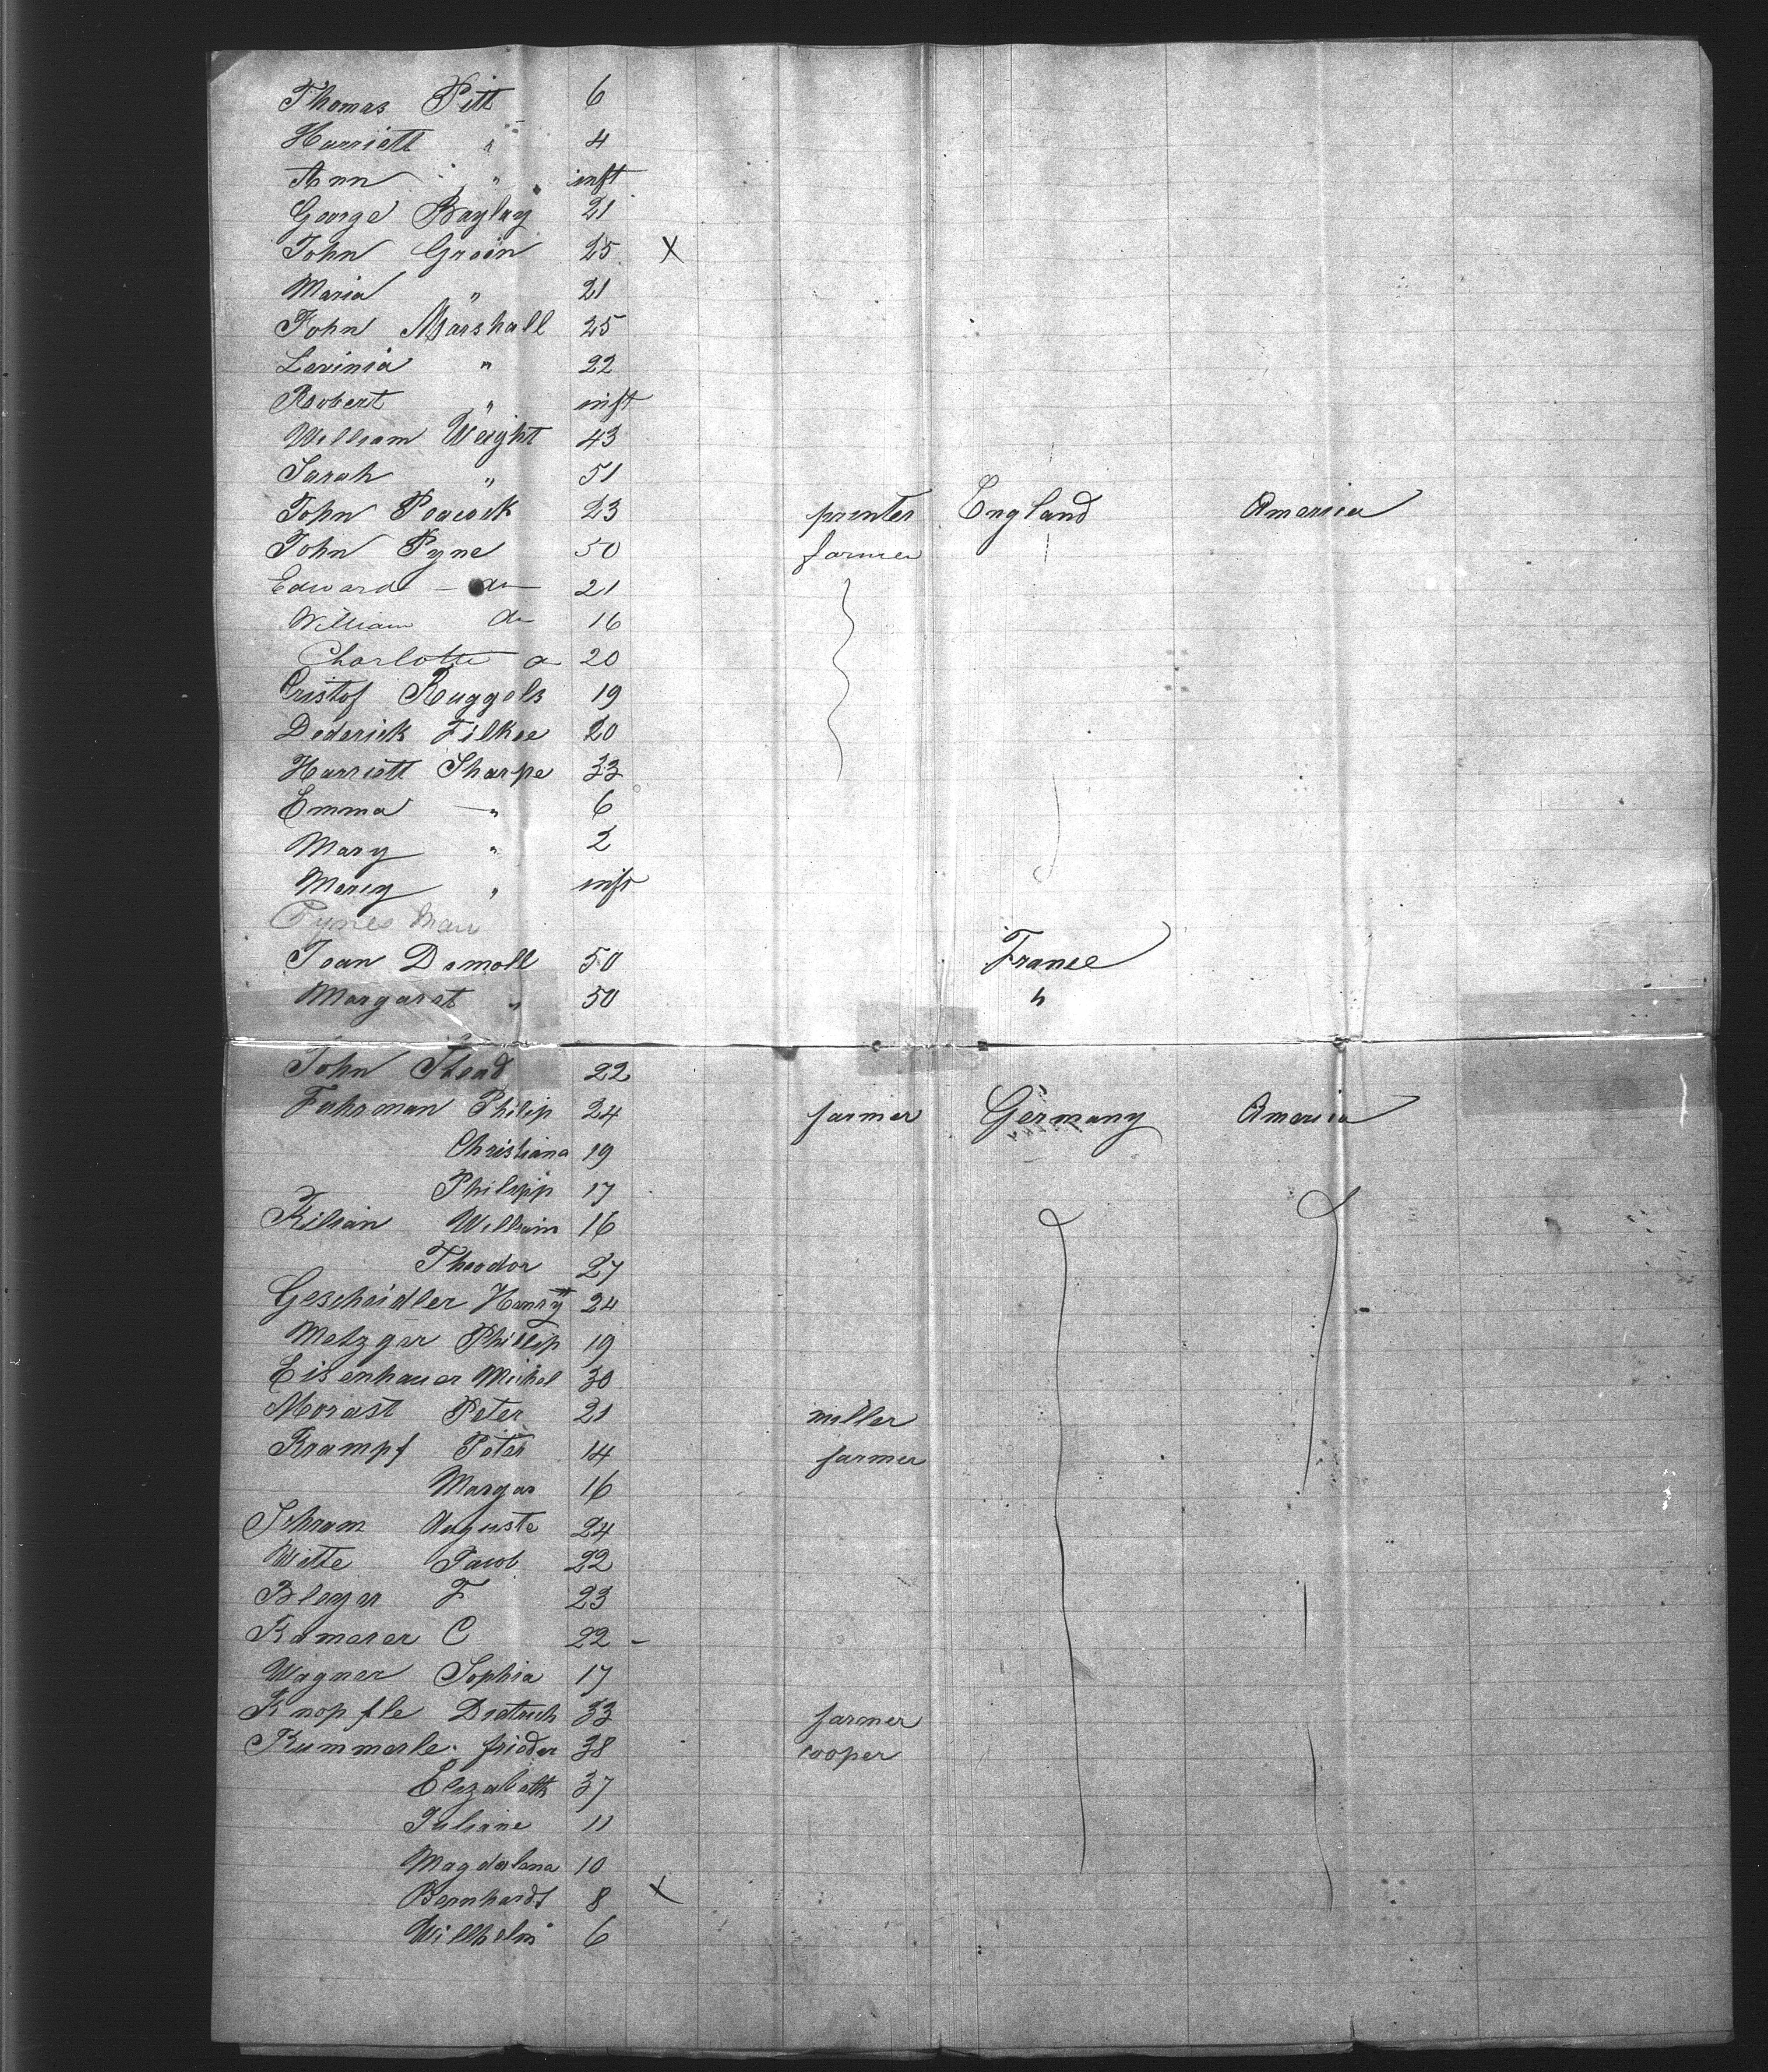 Thomas Pitt 6
Harriett " 4
Ann " inft
George Baylay 21
John Green 25 X
Maria " 21
John Marshall 25
Lavinia " 22
Robert " inft
William Weight 43
Sarah " 51
John Peacock 23 printer England America
John Pyne 50 farmer
Edward - do 21
William do 16
Charlotte do 20
Cristof Ruggels 19
Dederick Filkee 20
Harriett Sharpe 33
Emma " 6
Mary " 2
Marey " inft
Pynes Man
Jean Demoll 50 France
Margaret " 50 "
John Stead 22
Fuhrman Philip 24 farmer Germany America
Christiana 19
Philipp 17
Kilian William 16
Theodor 27
Gescheidler Henry 24
Metzger Phillip 19
Eisenhauer Michel 30
Morast Peter 21 miller
Krampf Peter 14 farmer
Margar 16
Schram Auguste 24
Witte Jacob 22
Bleyer F 23
Kamerer C 22 -
Wagner Sophia 17
Knopfle Dietrich 33 farmer
Kummerle frieder 38 cooper
Elizabeth 37
Juliane 11
Magdalena 10
Bernhardt 8 X
Willhelm 6